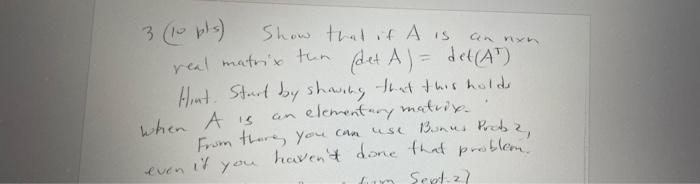 3 (10 pts) Show that if A is an nxn
real matrix then (det A) = det(Aᵀ)
Hint. Start by showing that this holds
when A is an elementary matrix.
From there, you can use Bonus Prob 2,
even if you haven't done that problem.
Sept. 27